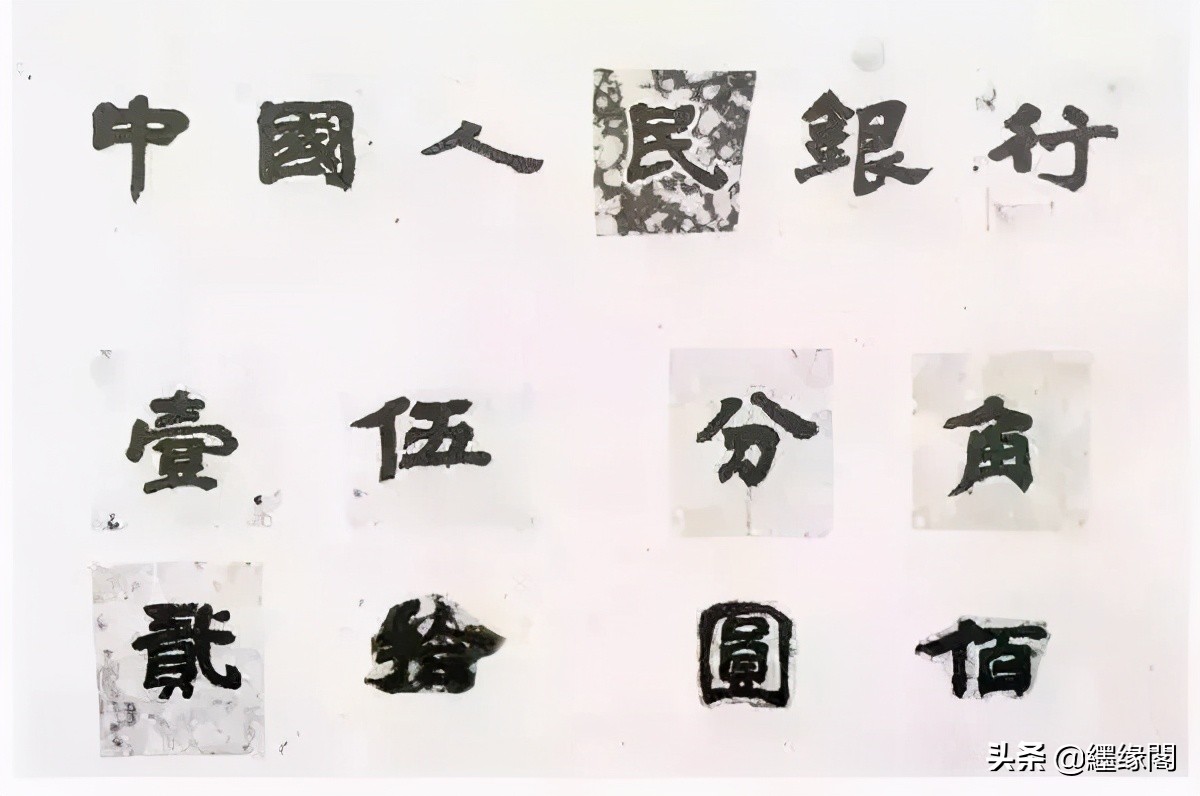 中國人民銀行
壹伍分角
貳拾圓佰
头条 @纆缘閣